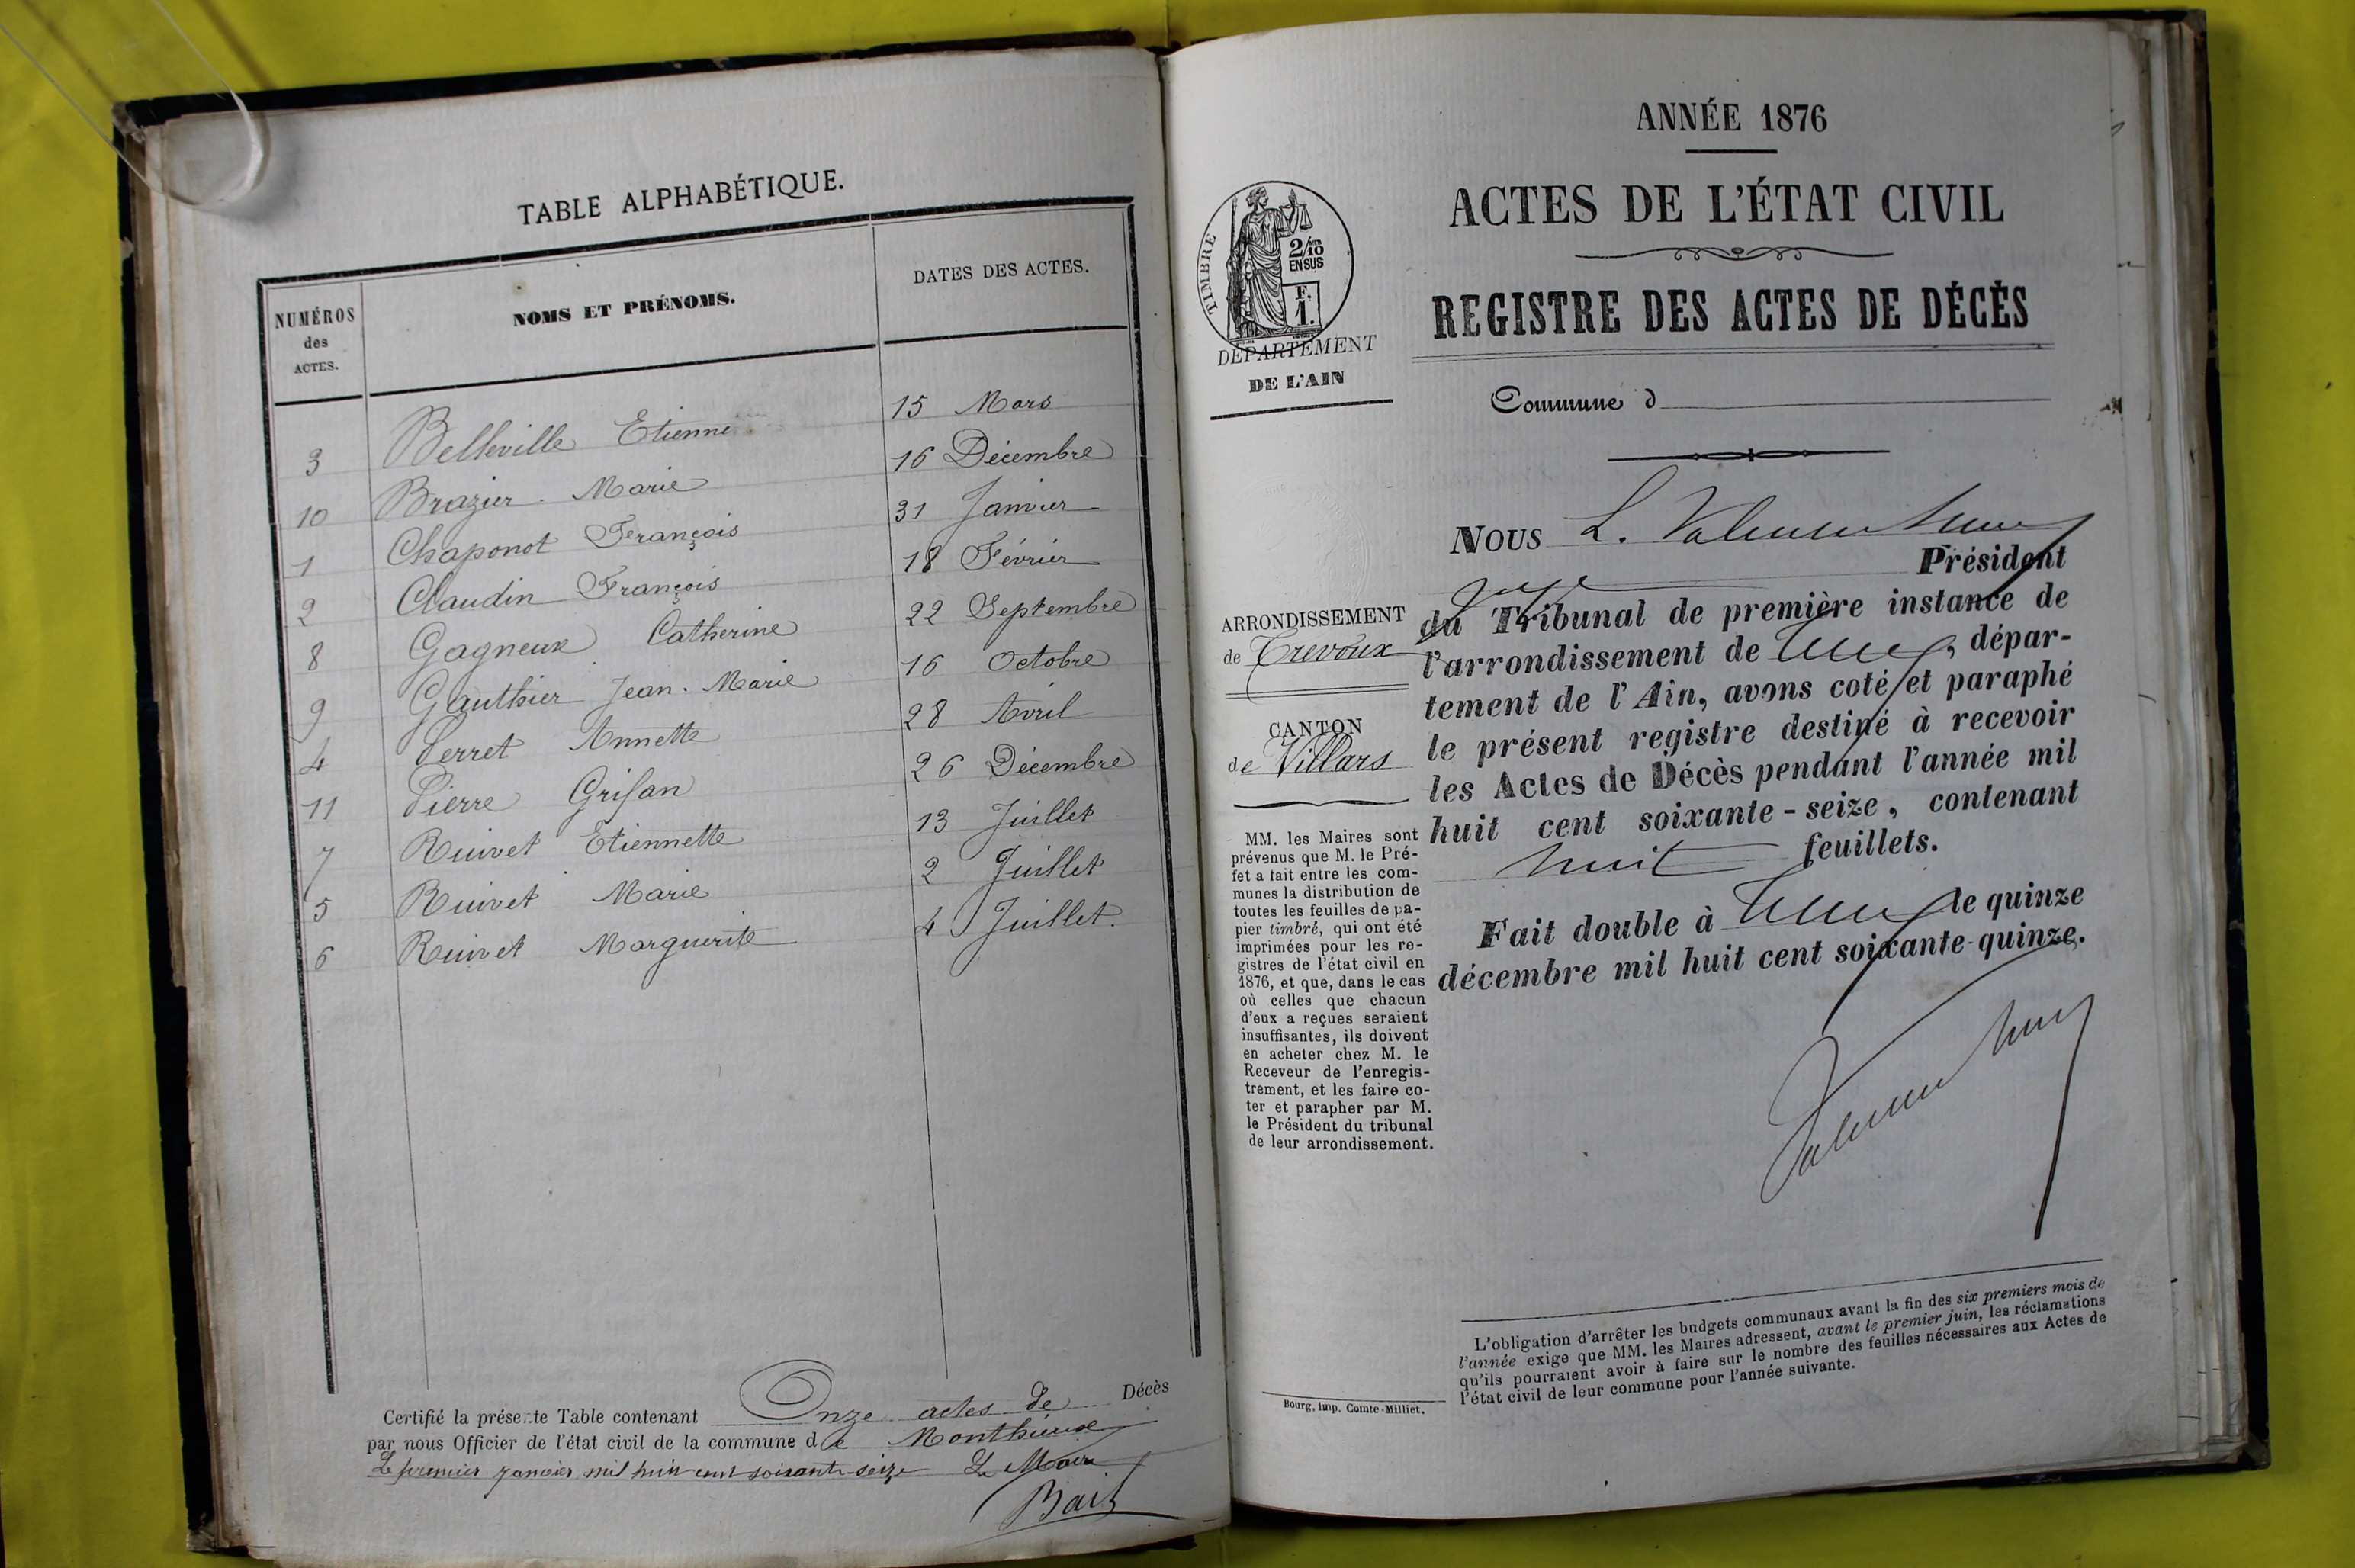 TABLE ALPHABÉTIQUE.
NUMÉROS des ACTES.
NOMS ET PRÉNOMS.
DATES DES ACTES.
3 Belleville Etienne 15 Mars
10 Brazier Marie 16 Décembre
1 Chaponot François 31 Janvier
2 Claudin François 18 Février
8 Gagneux Catherine 22 Septembre
9 Gauthier Jean-Marie 16 Octobre
4 Perret Annette 28 Avril
11 Pierre Grisan 26 Décembre
7 Ruivet Etiennette 13 Juillet
5 Ruivet Marie 2 Juillet
6 Ruivet Marguerite 4 Juillet.
Certifié la présente Table contenant Onze actes de Décès
par nous Officier de l'état civil de la commune de Monthieux
Le premier janvier mil huit cent soixante-seize Le Maire
ANNÉE 1876
ACTES DE L'ÉTAT CIVIL
REGISTRE DES ACTES DE DÉCÈS
TIMBRE
2/10 EN SUS
F. 1.
DÉPARTEMENT
DE L'AIN
Commune d
ARRONDISSEMENT
de Trevoux
CANTON
de Villars
MM. les Maires sont
prévenus que M. le Pré-
fet a fait entre les com-
munes la distribution de
toutes les feuilles de pa-
pier timbré, qui ont été
imprimées pour les re-
gistres de l'état civil en
1876, et que, dans le cas
où celles que chacun
d'eux a reçues seraient
insuffisantes, ils doivent
en acheter chez M. le
Receveur de l'enregis-
trement, et les faire co-
ter et parapher par M.
le Président du tribunal
de leur arrondissement.
NOUS L.
juge Président
du Tribunal de première instance de
l'arrondissement de dépar-
tement de l'Ain, avons coté et paraphé
le présent registre destiné à recevoir
les Actes de Décès pendant l'année mil
huit cent soixante-seize, contenant
huit feuillets.
Fait double à le quinze
décembre mil huit cent soixante-quinze.
L'obligation d'arrêter les budgets communaux avant la fin des six premiers mois de
l'année exige que MM. les Maires adressent, avant le premier juin, les réclamations
qu'ils pourraient avoir à faire sur le nombre des feuilles nécessaires aux Actes de
l'état civil de leur commune pour l'année suivante.
Bourg, imp. Comte-Milliet.